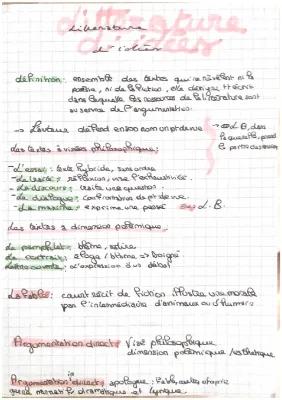 littérature d'idées
Littérature
d'idées
définition: ensemble des textes qui ne relèvent ni de la
poésie, ni de la fiction, elle désigne tt écrit
dans laquelle les ressources de la littérature sont
au service de l'argumentation.
→ L'auteur défend en son nom un pt de vue
Les textes à visées philosophique:
- L'essai: texte hybride, sans ordre
- Le traité: réflexion, vise l'exhaustivité.
- Le discours: traite une question
- Le dialogue: confrontation de pt de vue.
- La maxime: exprime une pensé L.B.
Les textes à dimension polémique.
Le pamphlet: blâme, satire
Le portrait: éloge / blâme
Lettre ouverte: d'expression d'un débat
La Fable: court récit de fiction illustre une morale
par l'intermédiaire d'animaux ou d'humains
Argumentation directe: visé philosophique
dimension polémique / esthétique
Argumentation indirecte: apologue: Fable, conte, utopie
registre dramatique et lyrique